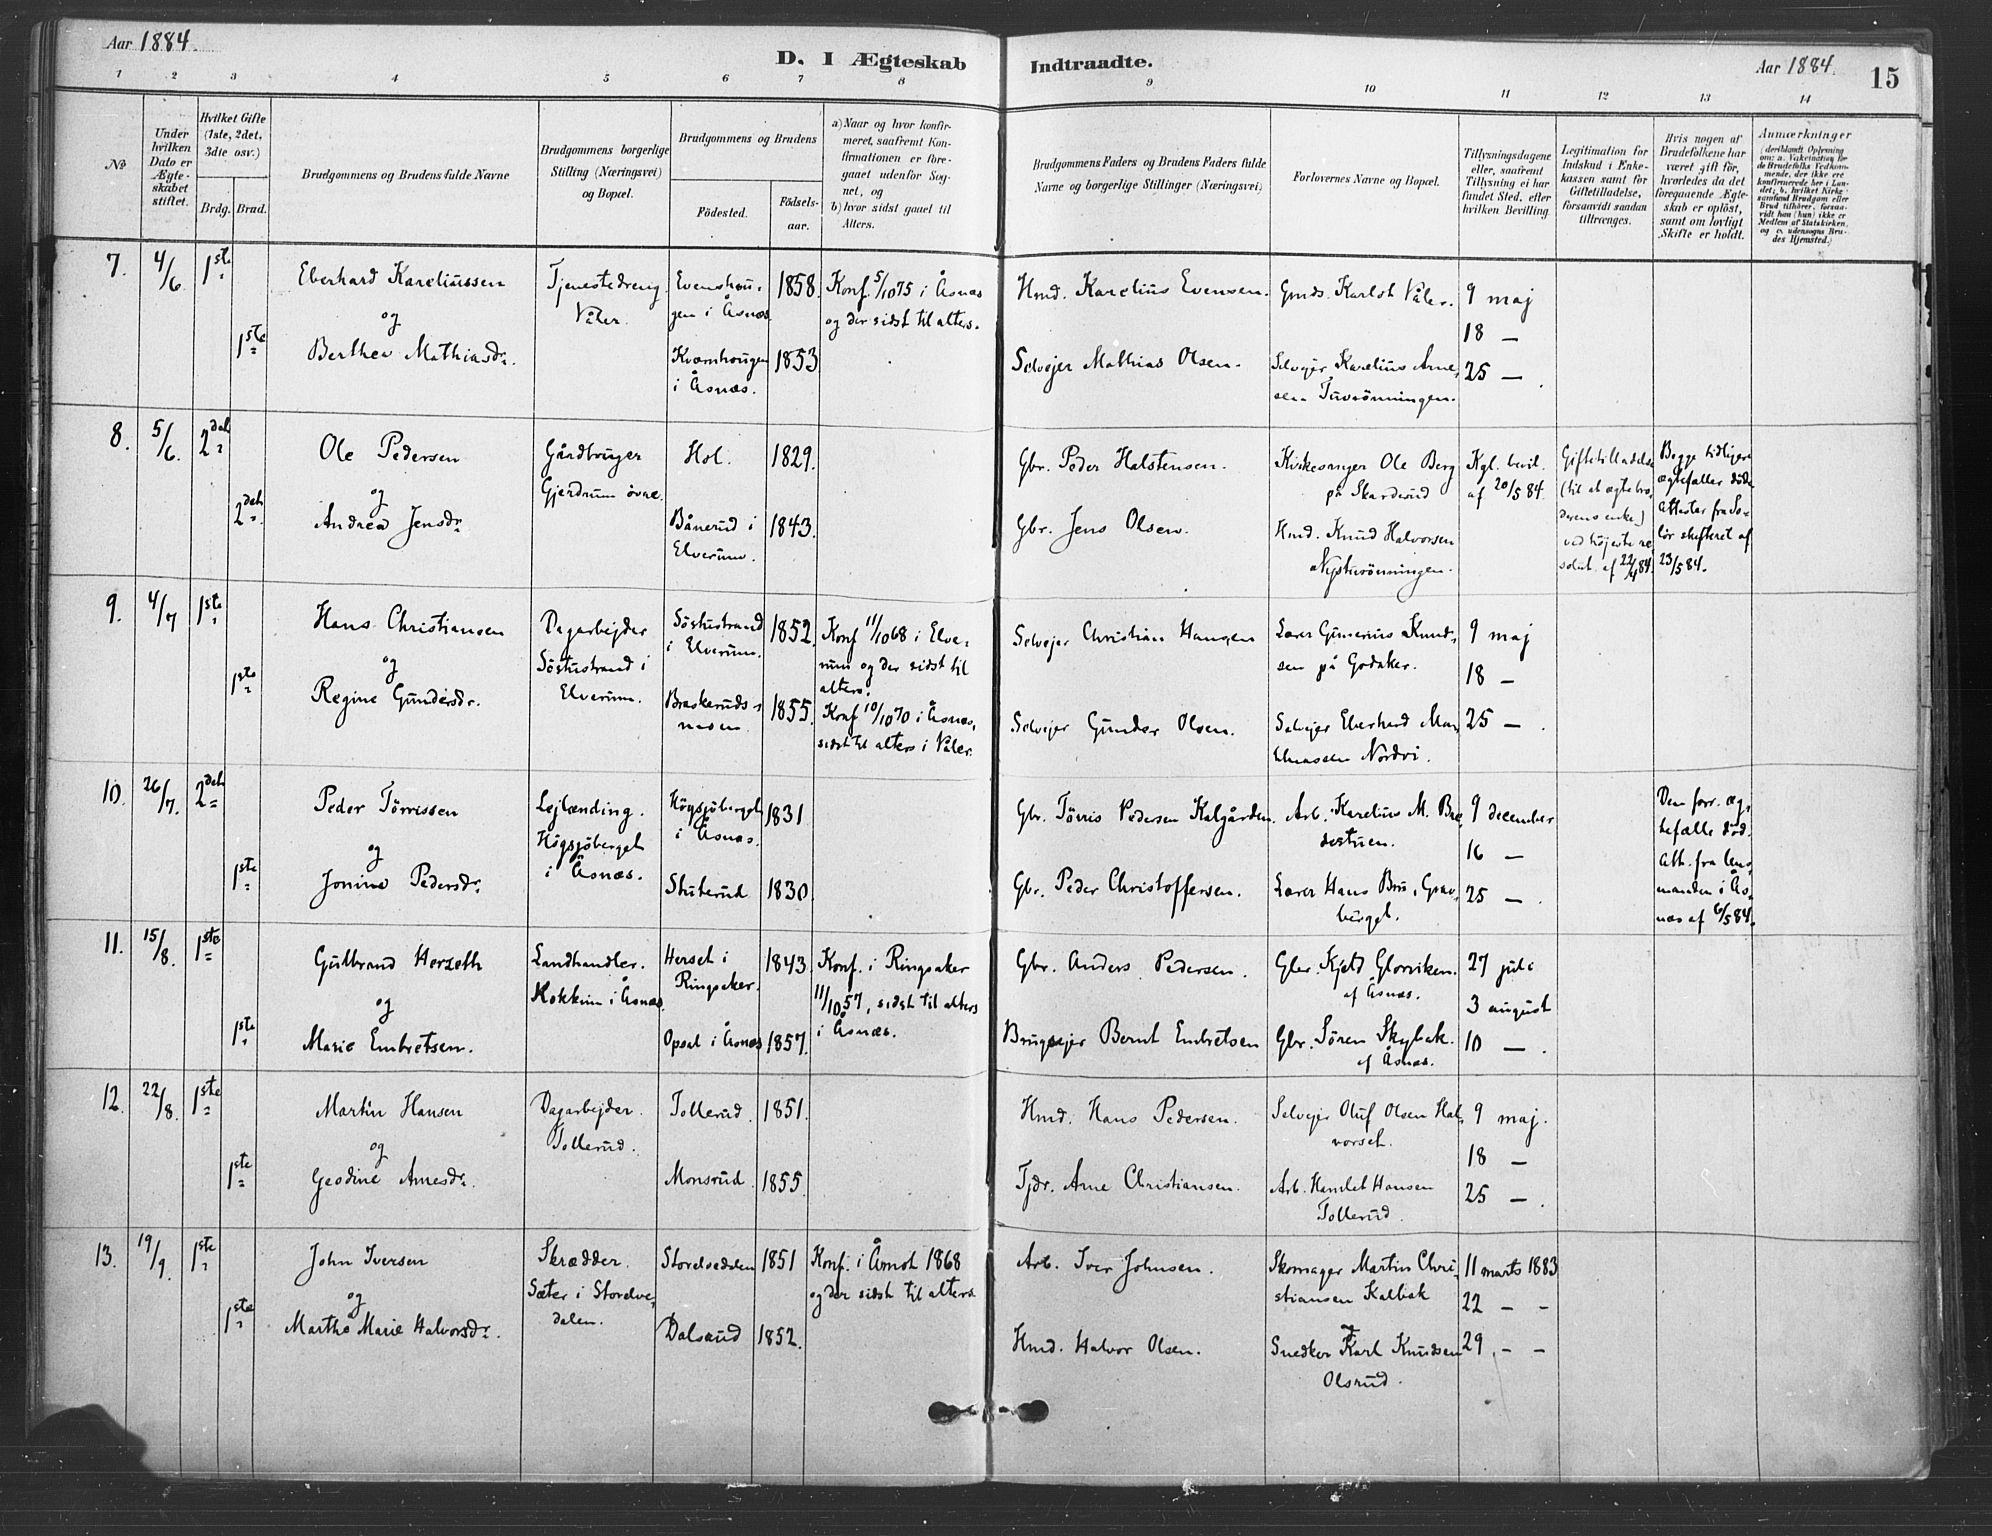 Aar 1884.
D. I Ægteskab Indtraadte.
Aar 1884.
15
1 2 3 4 5 6 7 8 9 10 11 12 13 14
No
Under hvilken Dato er Ægteskabet stiftet.
Hvilket Gifte (1ste, 2det, 3die osv.)
Brdg. Brud.
Brudgommens og Brudens fulde Navne
Brudgommens borgerlige Stilling (Næringsvei) og Bopæl.
Brudgommens og Brudens
Födested.
Födselsaar.
a) Naar og hvor konfirmeret, saafremt Konfirmationen er foregaaet udenfor Sognet, og
b) hvor sidst gaaet til Alters.
Brudgommens Faders og Brudens Faders fulde Navne og borgerlige Stillinger (Næringsvei)
Forlovernes Navne og Bopæl.
Tillysningsdagene eller, saafremt Tillysning ei har fundet Sted, efter hvilken Bevilling.
Legitimation for Indskud i Enkekassen samt for Giftetilladelse, forsaavidt saadan tiltrænges.
Hvis nogen af Brudefolkene har været gift för, hvorledes da det foregaaende Ægteskab er oplöst, samt om lovligt Skifte er holdt.
Anmærkninger
7. 4/6 1ste
Eberhard Kareliussen
og
1ste Berthea Mathiasdr.
Tjenestedreng
Våler.
Evenshaugen i Åsnæs 1858.
Kværnhougen i Åsnæs. 1853
Konf. 5/10 75 i Åsnæs
og der sidst til alters.
Hmd. Karelius Evensen.
Selvejer Mathias Olsen.
Gmds. Karlot Våler.
Selvejer Karelius Arnesen
9 maj
18 —
25 —.
8. 5/6. 2det
Ole Pedersen
og
2det Andrea Jensdr.
Gårdbruger
Gjerdrum övre.
Hol. 1829.
Bånerud i
Elverum. 1843.
Gbr. Peder Halstensen.
Gbr. Jens Olsen.
Kirkesanger Ole Berg
på Skarderud
Hmd. Knud Halvorsen
Kgl. bevil.
af 20/5 84.
Giftetilladelse
(til at ægte broderens enke)
ved höjeste resolut. af 22/4 84.
Begge tidligere
ægtefæller döde
Attester fra Solör skifteret af
23/5 84.
9. 4/7 1ste
Hans Christiansen
og
1ste Regine Gundersdr.
Dagarbejder
Söstustrand i
Elverum.
Söstustrand
i Elverum. 1852.
Braskerudsmoen 1855.
Konf 11/10 68 i Elverum og der sidst til
alters.
Konf 10/10 70 i Åsnæs,
sidst til alters i Våler.
Selvejer Christian Haugen
Selvejer Gunder Olsen.
Lærer Gunerius Knudsen på Godaker.
Selvejer Eberhard
Nordvi.
9 maj
18 —
25 —.
10. 26/7. 2det
Peder Törrissen
og
1ste Jonine Pedersdr.
Lejlænding.
Högsjöberget
i Åsnæs.
Högsjöberget
i Åsnæs. 1831
Skuterud 1830.
Gbr. Törris Pedersen Kalgården.
Gbr. Peder Christoffersen.
Arb. Karelius M.
Lærer Hans Bru, Gravberget.
9 december
16 —
25 —.
Den forr. ægtefælle död.
Att. fra lensmanden i Åsnæs af 6/5 84.
11. 15/8. 1ste
Gulbrand Herseth
og
1ste Marie Embretsen.
Landhandler.
Kokkim i Åsnæs.
Herset i
Ringsaker. 1843
Opsal i Åsnæs 1857.
Konf. i Ringsaker
11/10 57, sidst til alters
i Åsnæs.
Gbr. Anders Pedersen.
Brugsejer Bernt Embretsen
Gbr. Kjeld Glorviken.
af Åsnæs.
Gbr. Sören Skybak.
af Åsnæs.
27 juli
3 august
10 —.
12. 22/8. 1ste
Martin Hansen
og
1ste Geodine Arnesdr.
Dagarbejder.
Tollerud.
Tollerud. 1851.
Monsrud. 1855.
Hmd. Hans Pedersen.
Tjdr. Arne Christiansen.
Selvejer Oluf Olsen Halvorset.
Arb. Hamlet Hansen
Tollerud.
9 maj.
18 —
25 —.
13. 19/9. 1ste
John Iversen
og
1ste Marthe Marie Halvorsdr.
Skrædder.
Sæter i Storelvedalen.
Storelvedalen 1851
Dalsrud 1852.
Konf. i Åmot 1868
og der sidst til alters
Arb. Iver Johnsen.
Hmd. Halvor Olsen.
Skomager Martin Christiansen Kalbak
og
Snedker Karl Knudsen
Olsrud.
11 marts 1883
22 — —
29. — —